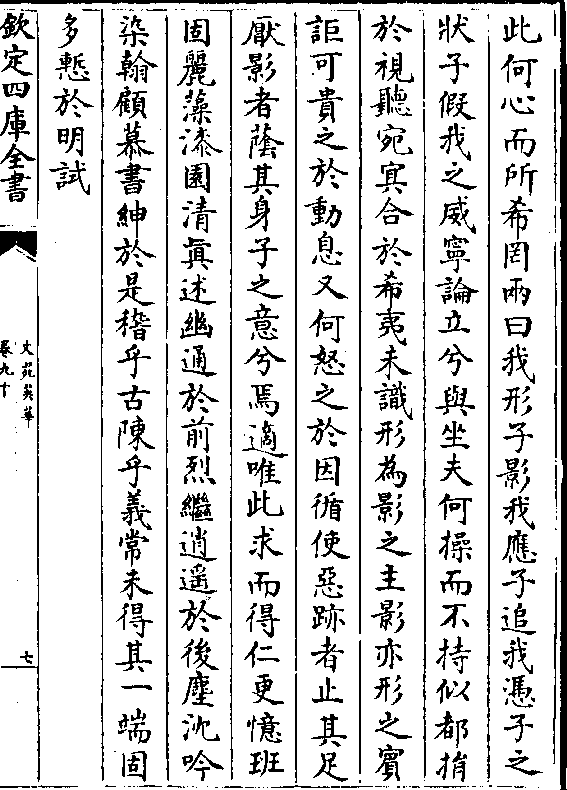 此何心而所希罔兩曰我形子影我應子追我憑子之
狀子假我之威寧論立兮與坐夫何操而不持似都捐
於視聽宛冥合於希夷未識形為影之主影亦形之賓
詎可貴之於動息又何怒之於因循使惡跡者止其足
厭影者蔭其身子之意兮焉適唯此求而得仁更憶班
固麗藻漆園清眞述幽通於前烈繼逍遥於後塵沈吟
染翰顧慕書紳於是稽乎古陳乎義常未得其一端固
多慙於明試
欽定四庫全書
文苑英華
卷九十
七